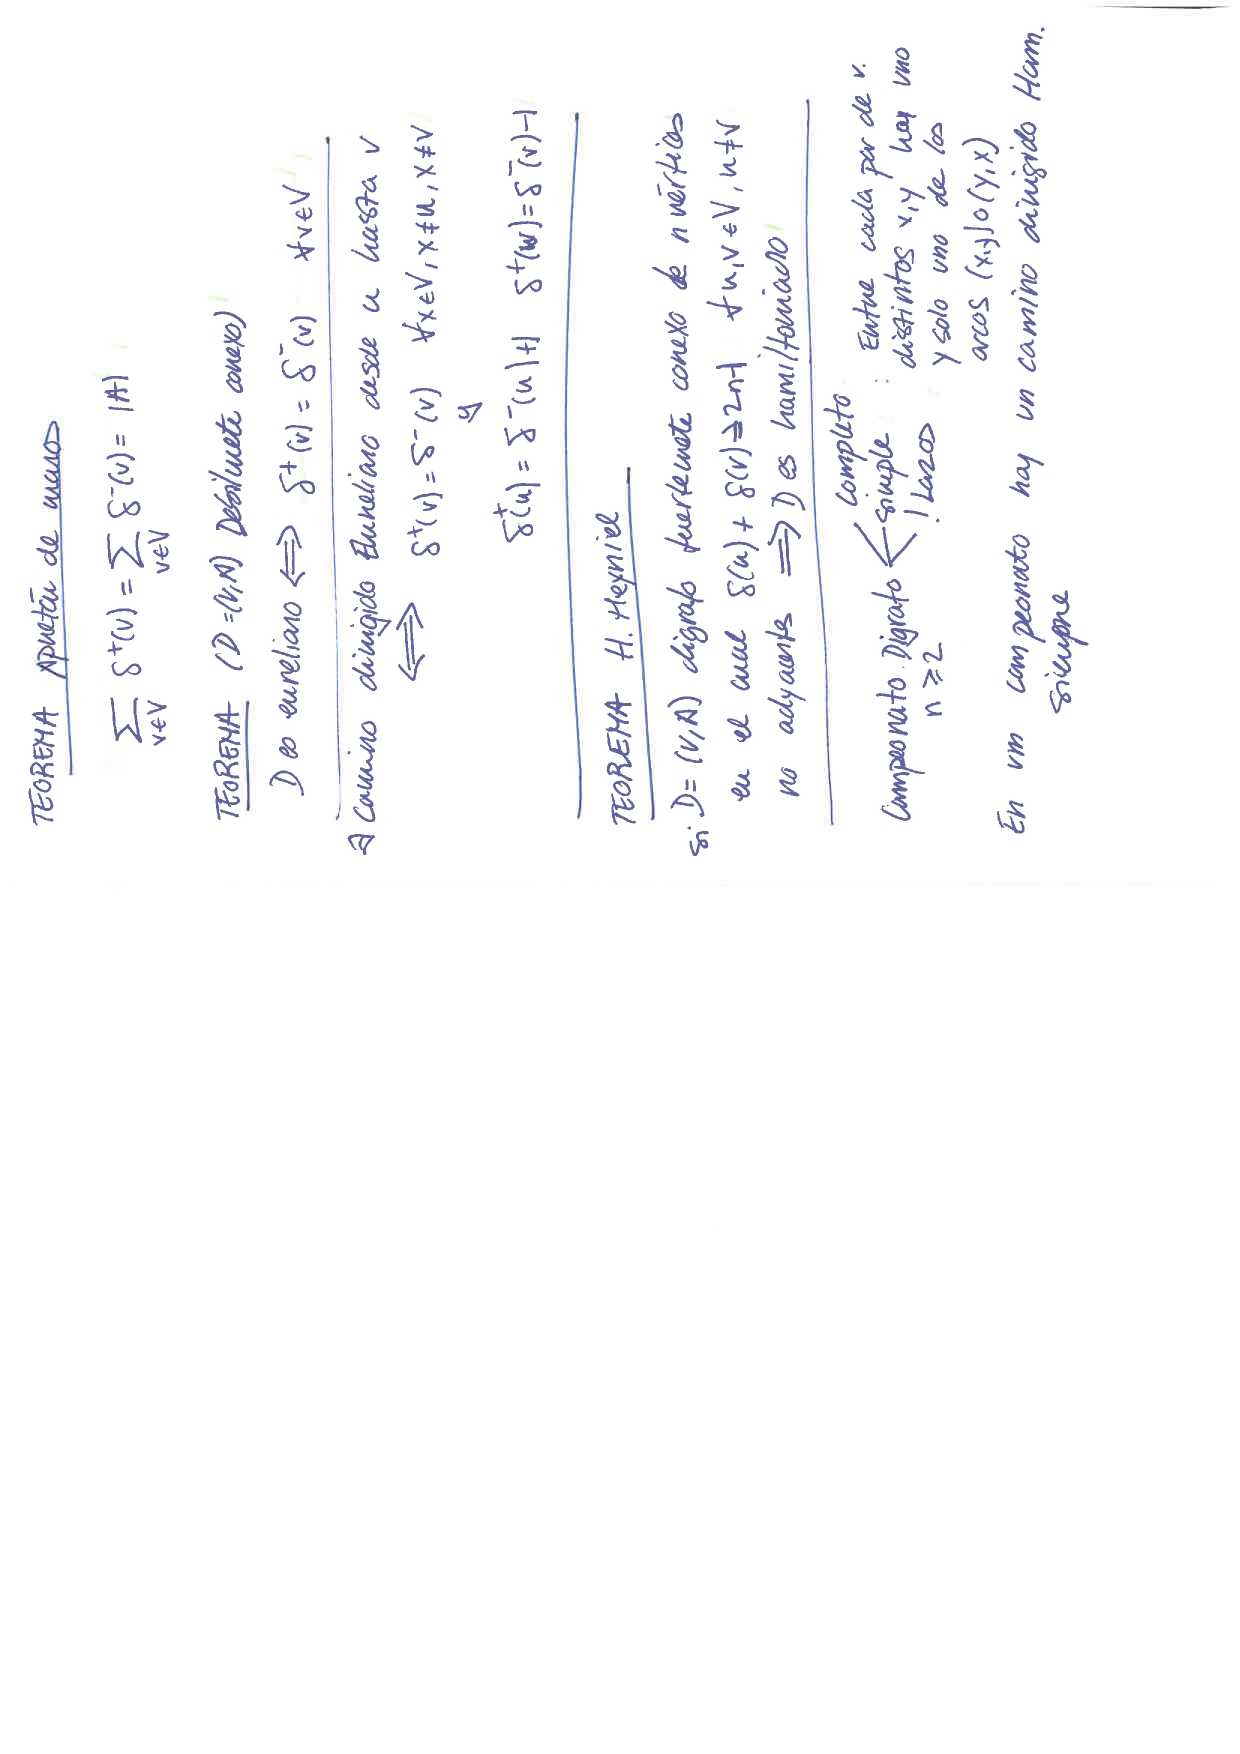 TEOREMA Apretón de manos
∑ δ⁺(v) = ∑ δ⁻(v) = |A|
v∈V v∈V
TEOREMA (D=(V,A) Debilmente conexo)
D es eureliano ⟺ δ⁺(v) = δ⁻(v) ∀v∈V
∃ Camino dirigido Eureliano desde u hasta v
⟺ δ⁺(v) = δ⁻(v) ∀x∈V, x≠u, x≠v
y
δ⁺(u) = δ⁻(u)+1 δ⁺(v) = δ⁻(v)-1
TEOREMA H. Heyniel
Si D=(V,A) digrafo fuertemente conexo de n vértices
en el cual δ(u) + δ(v) ≥ 2n-1 ∀u,v∈V, u≠v
no adyacentes ⟹ D es hamiltoniano
Campeonato. Digrafo
n ≥ 2
Completo
simple
! Lazos
: Entre cada par de v.
distintos x,y hay uno
y solo uno de los
arcos (x,y) o (y,x)
En un campeonato hay un camino dirigido Ham.
siempre